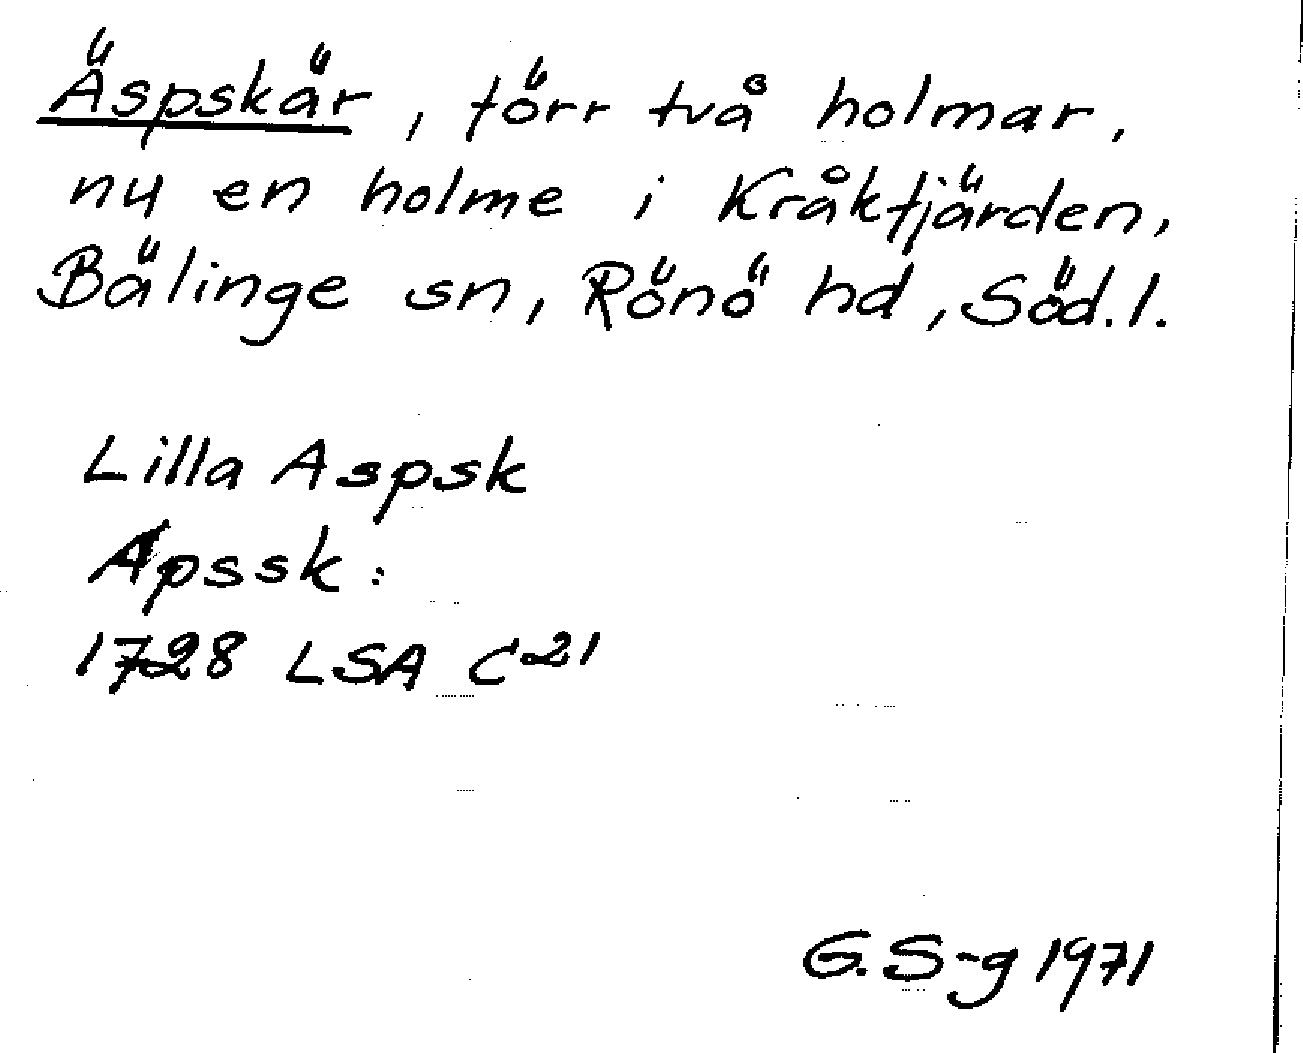 Äspskär, förr två holmar,
nu en holme i Kråkfjärden,
Bälinge sn, Rönö hd, Söd.l.
Lilla Aspsk
Apssk:
1728 LSA C21
G.S-g 1971